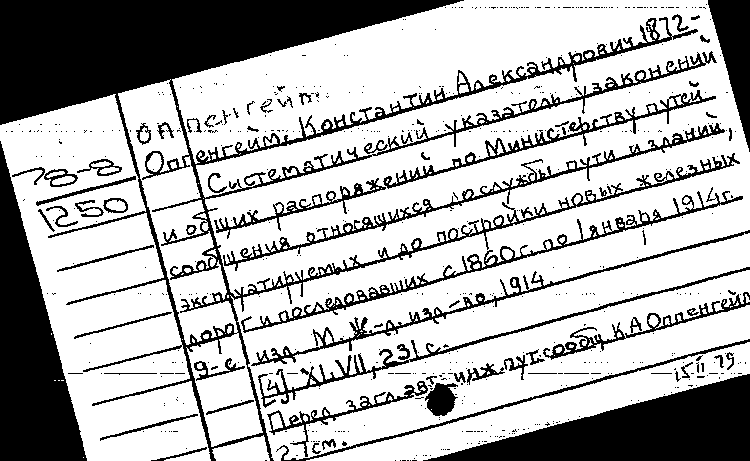 Оппенгейм.
Оппенгейм, Константин Александрович. 1872-
78-8
1250
Систематический указатель узаконений
и общих распоряжений по Министерству путей
сообщения, относящихся до службы пути и зданий,
эксплуатируемых и до постройки новых железных
дорог и последовавших с 1860 г. по 1 января 1914 г.
9-е изд. М., Ж.-д. изд.-во, 1914.
[4], XLVII, 231 с.
Перед загл. авт.: инж. пут. сообщ. К. А. Оппенгейм
27 см.
15 II 79